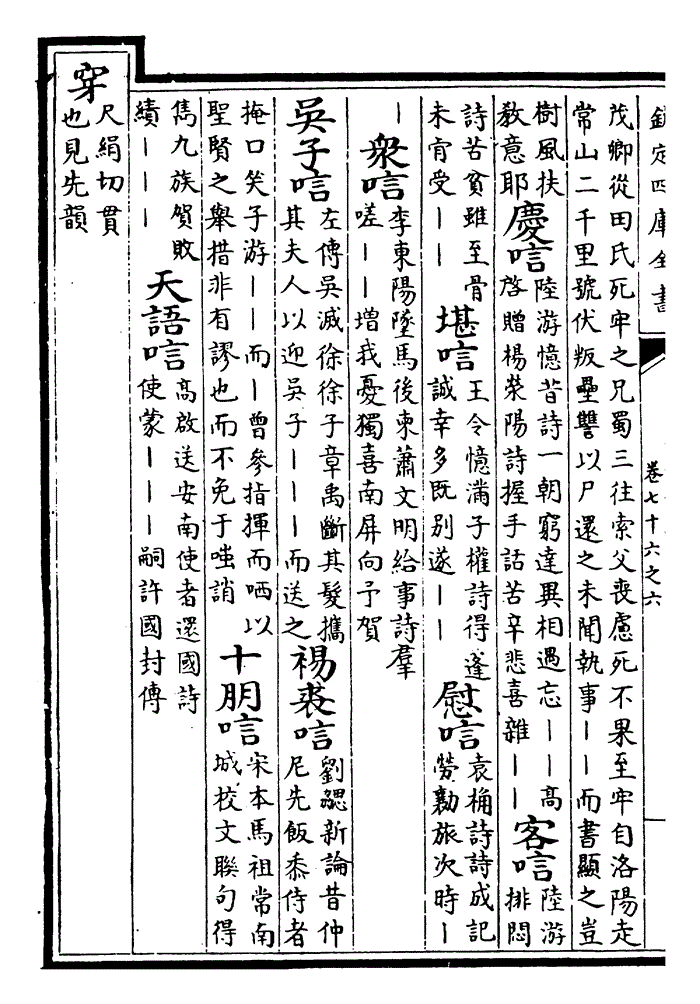 欽定四庫全書
卷七十六之六
茂卿從田氏死牢之兄蜀三往索父喪慮死不果至牢自洛陽走
常山二千里號伏叛壘讐以尸還之未聞執事丨丨而書顯之豈
樹風扶
敎意耶
慶唁
陸游憶昔詩一朝窮達異相遇忘丨丨高
啓贈楊滎陽詩握手話苦辛悲喜雜丨丨
客唁
陸游
排悶
詩苦貧雖至骨
未肯受丨丨
堪唁
王令憶滿子權詩得逢
誠幸多既别遂丨丨
慰唁
袁桷詩詩成記
勞勩旅次時丨
丨
衆唁
李東陽墜馬後柬蕭文明給事詩羣
嗟丨丨增我憂獨喜南屏向予賀
吳子唁
左傳吳滅徐徐子章禹斷其髮攜
其夫人以迎吳子丨丨丨而送之
裼裘唁
劉勰新論昔仲
尼先飯黍侍者
掩口笑子游丨丨而丨曾參指揮而哂以
聖賢之舉措非有謬也而不免于嗤誚
十朋唁
宋本馬祖常南
城校文聯句得
雋九族賀敗
績丨丨丨
天語唁
高啟送安南使者還國詩
使蒙丨丨丨嗣許國封傳
穿
尺絹切貫
也見先韻